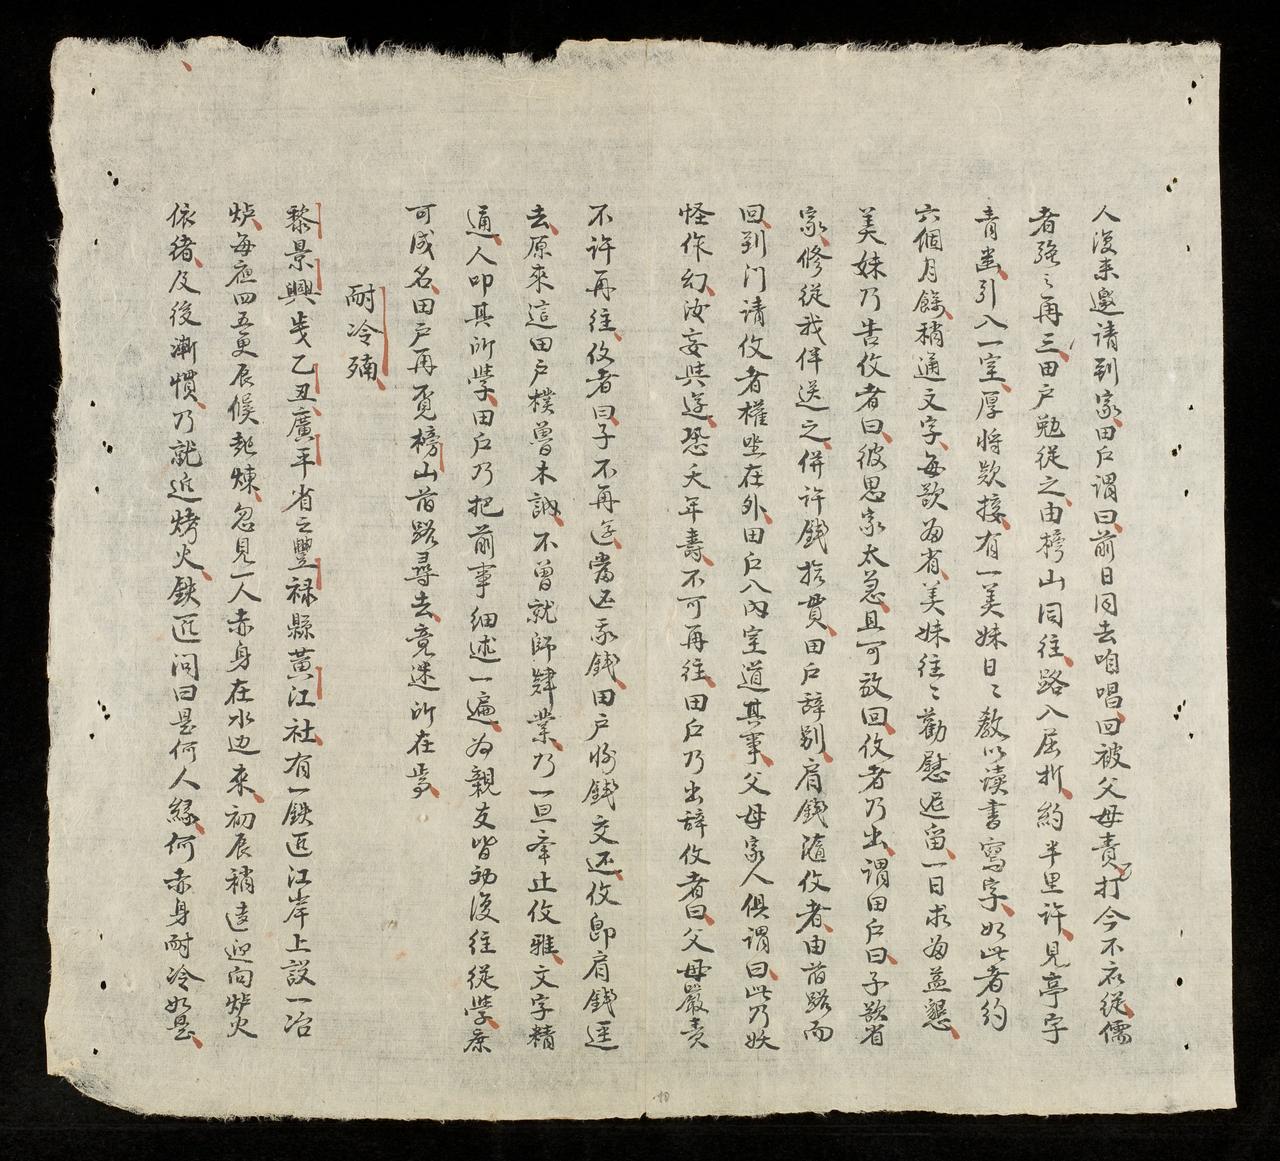 人復來邀請到家田户謂曰前日同去咱唱回被父母責打今不敢從儒
者強〻再三田户勉從之由榜山同往路入屈折約半里許見亭宇
青幽引入一室厚將欵接有一美妹日〻教以讀書寫字如此者約
六個月餘稍通文字每欲为省美妹往〻勸慰迟留一日求为益懇
美妹乃告伩者曰彼思家太急且可放回伩者乃出謂田户曰子欲省
家修從我伴送之併許錢拾貫田户辞别肩錢隨伩者由舊路而
回到门請伩者權坐在外田户入内室道其事父母家人俱謂曰此乃妖
怪作幻汝妄與遊恐夭年壽不可再往田户乃出辞伩者曰父母嚴責
不許再往伩者曰子不再遊當还我錢田户將錢交还伩即肩錢逕
去原來這田户樸魯木訥不曾就師肄業乃一旦舉止伩雅文字精
通人叩其所學田户乃把前事细述一遍为親友皆劝復往從學庶
可成名田户再覓榜山舊路尋去竟迷所在焉
耐冷
黎景興歲乙丑廣平省之豐禄縣黄江社有一鉄匠江岸上設一冶
炉每夜四五更辰候起煉忽見一人赤身在水边來初辰稍遠迎向炉火
依绪及後漸慣乃就近烤火鉄匠问曰是何人緣何赤身耐冷如是